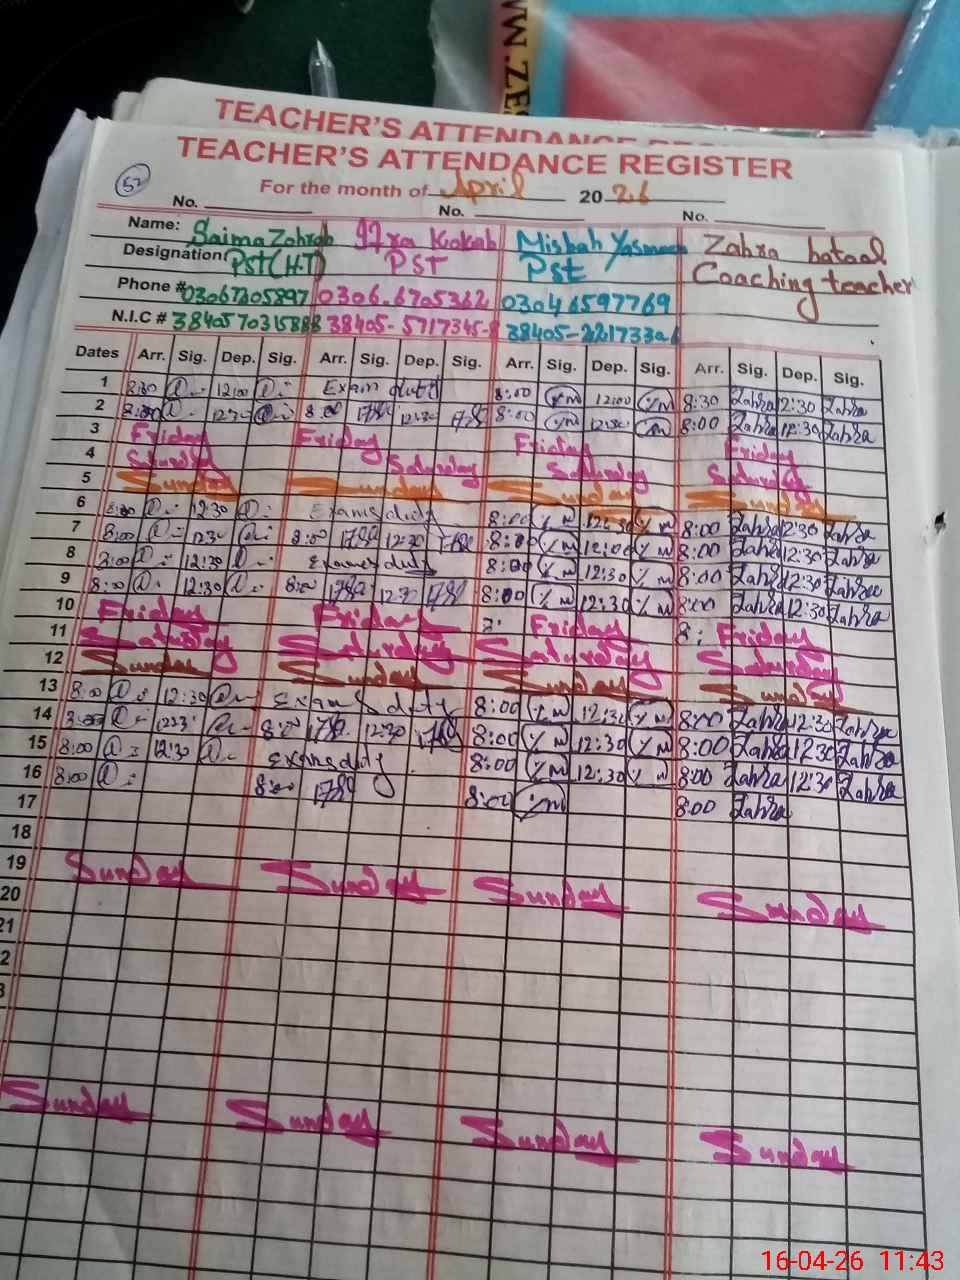 WW.ZES
TEACHER'S ATTENDANCE
TEACHER'S ATTENDANCE REGISTER
52
For the month of April 2026
No. No. No.
Name: Saima Zahrah Iqra Kokab Misbah Yasmeen Zahra batool
Designation: Pst (H.T) PST Pst Coaching teacher
Phone # 03067305897 0306.6705362 03046597769
N.I.C # 3840570315888 38405-5717345-8 38405-2217330
Dates Arr. Sig. Dep. Sig. Arr. Sig. Dep. Sig. Arr. Sig. Dep. Sig. Arr. Sig. Dep. Sig.
1 8:30 12:00 Exam duty 8:00 12:00 8:30 Zahra 12:30 Zahra
2 8:00 12:30 8:00 12:30 8:00 12:30 8:00 Zahra 12:30 Zahra
3 Friday Friday Friday Friday
4 Saturday Saturday Saturday Saturday
5 Sunday Sunday Sunday Sunday
6 8:00 12:30 Exams duty 8:00 12:30 8:00 Zahra 12:30 Zahra
7 8:00 12:30 8:00 12:30 8:00 12:00 8:00 Zahra 12:30 Zahra
8 8:00 12:30 Exames duty 8:00 12:30 8:00 Zahra 12:30 Zahra
9 8:00 12:30 8:00 12:30 8:00 12:30 8:00 Zahra 12:30 Zahra
10 Friday Friday Friday Friday
11 Saturday Saturday Saturday Saturday
12 Sunday Sunday Sunday Sunday
13 8:00 12:30 Exam duty 8:00 12:30 8:00 Zahra 12:30 Zahra
14 8:00 12:30 8:00 12:30 8:00 12:30 8:00 Zahra 12:30 Zahra
15 8:00 12:30 Exams duty 8:00 12:30 8:00 Zahra 12:30 Zahra
16 8:00 8:00 8:00 8:00 Zahra
17
18
19 Sunday Sunday Sunday Sunday
20
21
2
3
Sunday Sunday Sunday Sunday
16-04-26 11:43